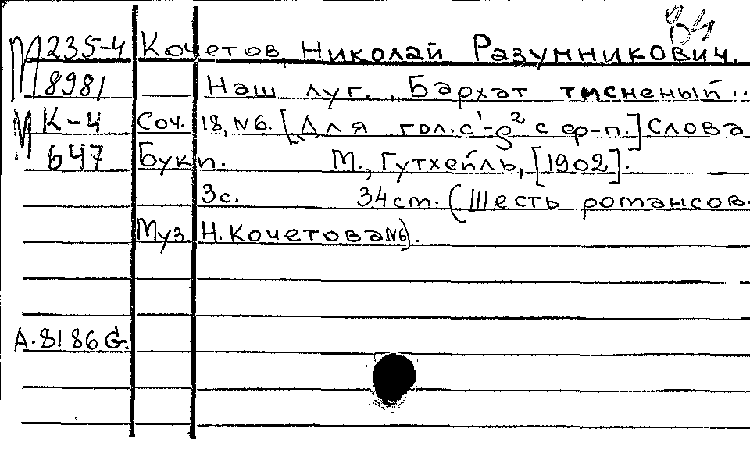 М 235-4 Кочетов, Николай Разумникович.
8981 Наш луг. Бархат тисненый..
М К-4 Соч. 18, №6. [Для гол. c¹-g² с ф-п.] Слова
647 Букп. М., Гутхейль, [1902].
3с. 34 ст. (Шесть романсов.
Муз. Н. Кочетова №6).
А.8186 G.